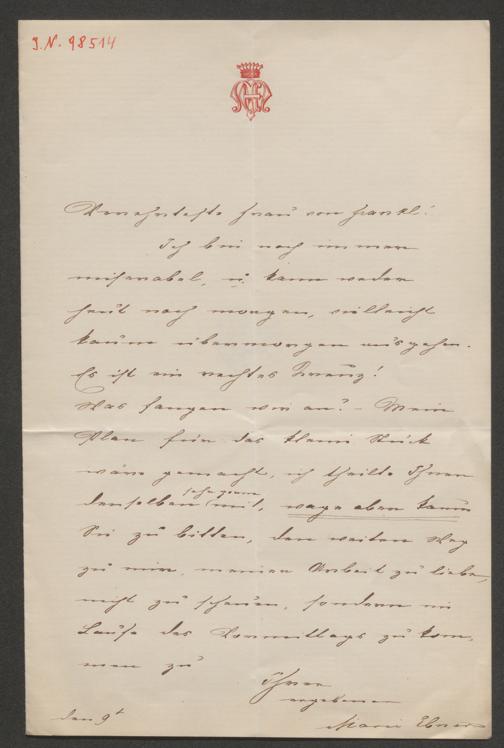 J. N. 98514
Verehrteste Frau von Frankl!
Ich bin noch immer
miserabel, u. kann weder
heut noch morgen, vielleicht
kaum übermorgen ausgehen.
Es ist ein rechtes Kreuz!
Was fangen wir an? – Mein
Plan für das kleine Stück
wäre gemacht, ich theilte Ihnen
denselben sehr gerne mit, wage aber kaum
Sie zu bitten, den weiten Weg
zu mir, meiner Arbeit zu liebe,
nicht zu scheuen, sondern im
Laufe des Vormittags zu kom-
men zu
Ihrer
ergebenen
den 9t
Marie Ebner